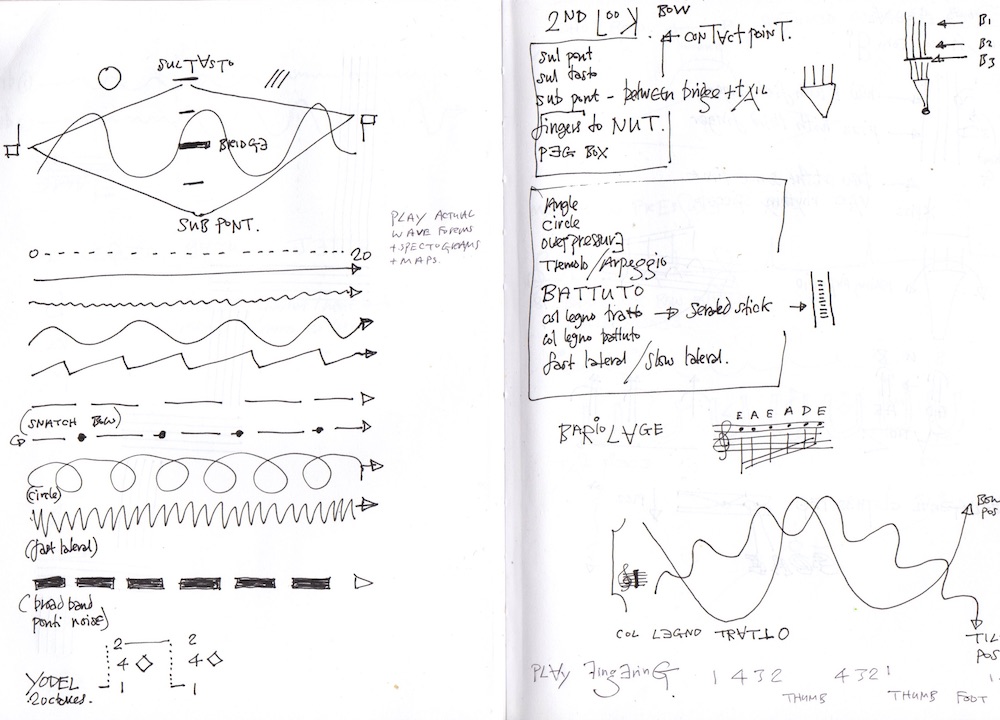 SUL TASTO
BRIDGE
SUB PONT.
PLAY ACTUAL
WAVE FORMS
+ SPECTOGRAMS
+ MAPS.
0 20
(SNATCH BOW)
(circle)
(fast lateral)
(broad band
ponti noise)
2 2
4 4
1 1
YODEL
2 octaves.
2ND LOOK.
BOW
CONTACT POINT.
sul pont
sul tasto
sub pont - between bridge + tAIL
fingers to NUT.
PEG BOX
B1
B2
B3
Angle
circle
overpressure
Tremolo / Arpeggio
BATTUTO
col legno tratto → serated stick →
col legno battuto
fast lateral / slow lateral.
BARIOLAGE
E A E A D E
BOW
POS
COL LEGNO TRATTO
TILT
POS
PLAY FingerinG 1 4 3 2 4 3 2 1
THUMB THUMB FOOT